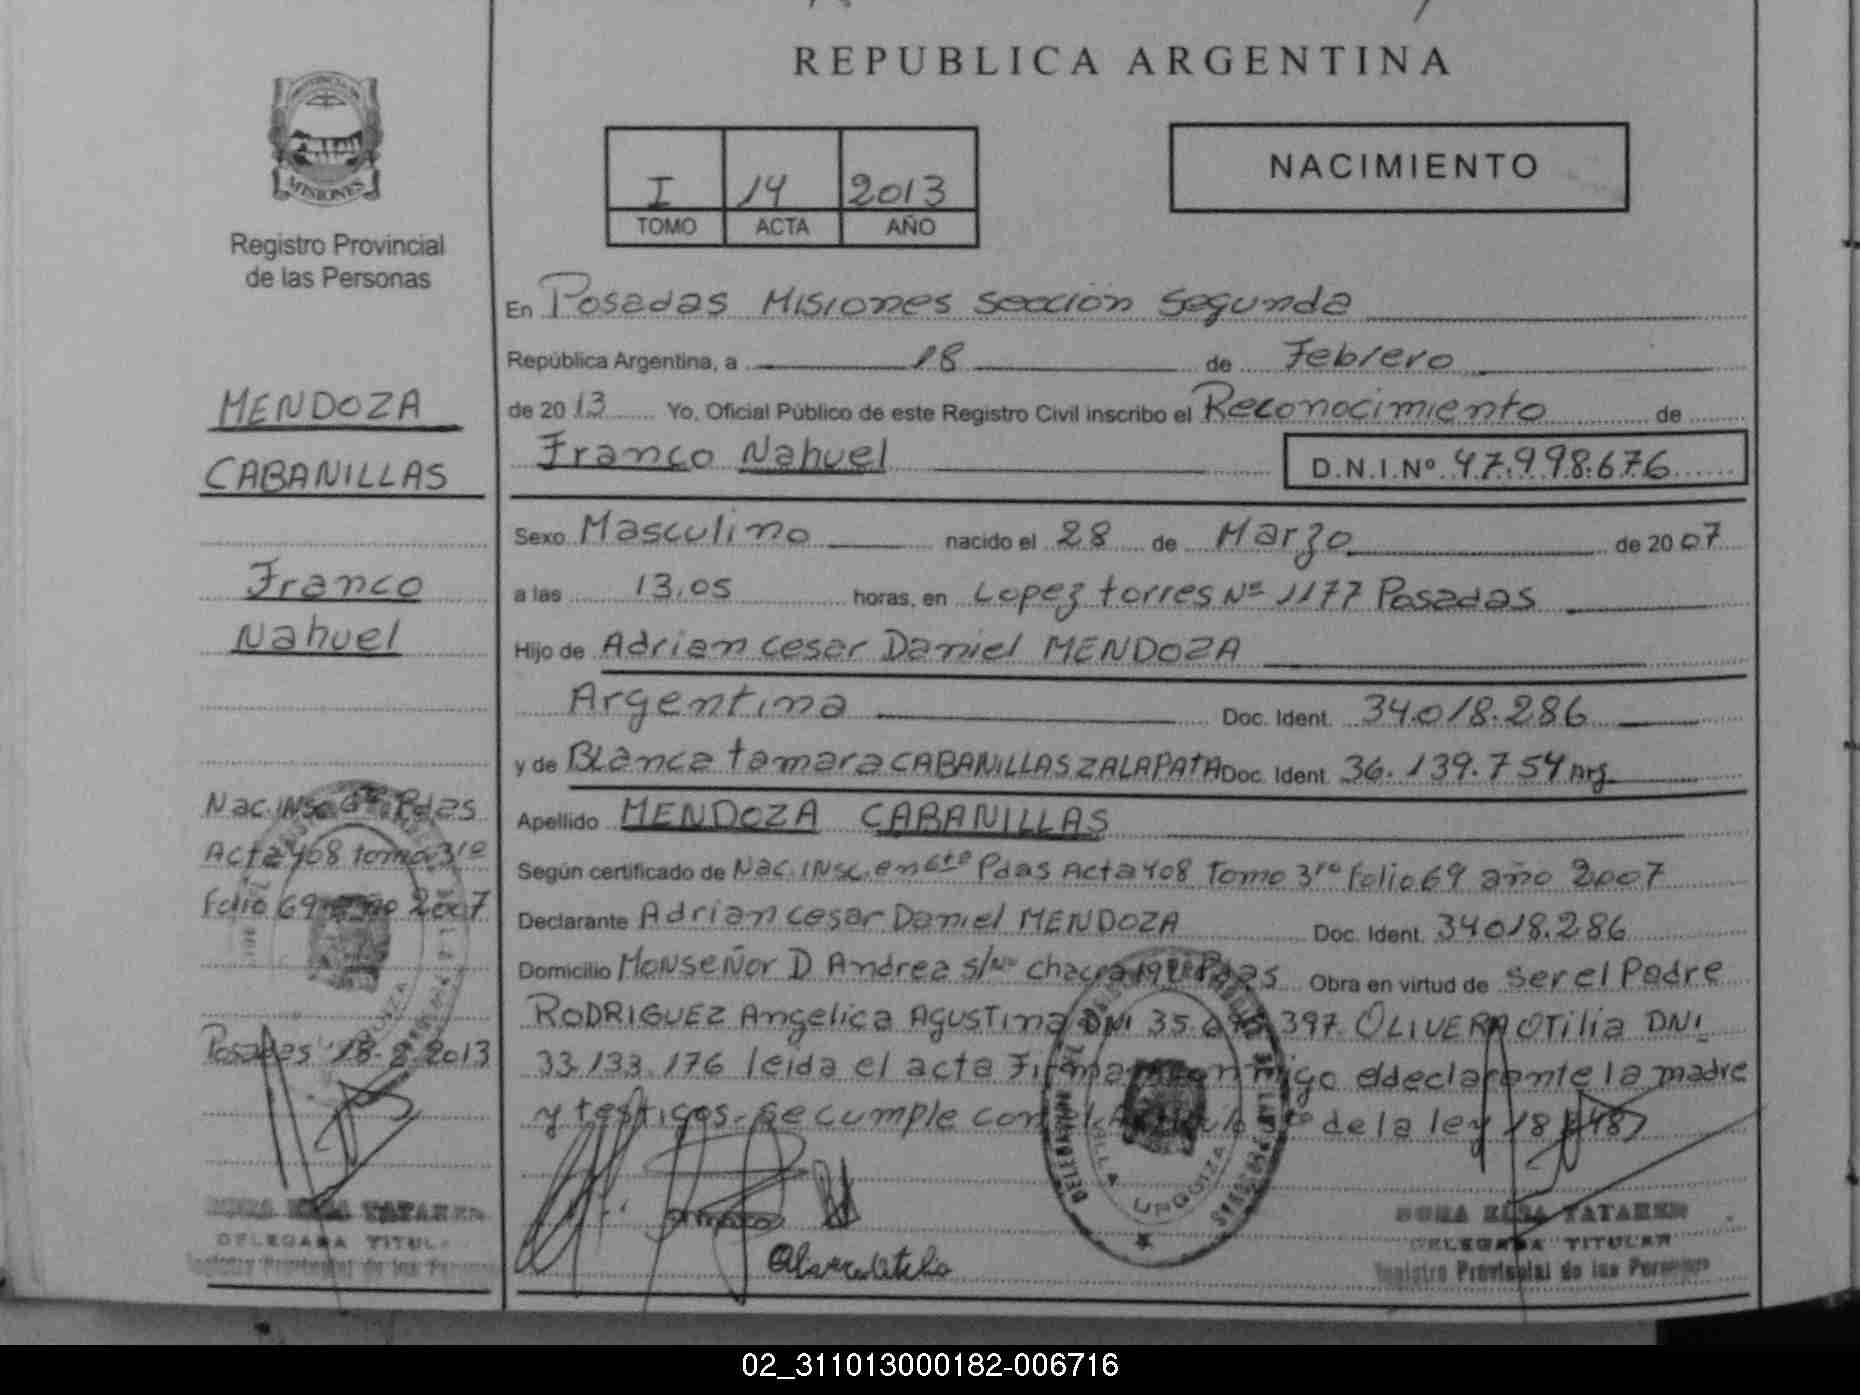 REPUBLICA ARGENTINA
PROVINCIA DE
MISIONES
Registro Provincial
de las Personas
I 14 2013
TOMO ACTA AÑO
NACIMIENTO
MENDOZA
CABANILLAS
Franco
Nahuel
Nac. INSC 6ta Pdas
Acta 408 tomo 3ro
Folio 69 año 2007
Posadas 18-2-2013
DELEGADA TITULAR
Registro Provincial de las Personas
En Posadas Misiones Sección Segunda
República Argentina, a 18 de Febrero
de 2013 Yo, Oficial Público de este Registro Civil inscribo el Reconocimiento de
Franco Nahuel D.N.I.Nº 47.998.676
Sexo Masculino nacido el 28 de Marzo de 2007
a las 13.05 horas, en Lopez torres Nº 1177 Posadas
Hijo de Adrian cesar Daniel MENDOZA
Argentina Doc. Ident. 34.018.286
y de Blanca tamara CABANILLAS ZALAPATA Doc. Ident. 36.139.754 Arg.
Apellido MENDOZA CABANILLAS
Según certificado de Nac. INSC. en 6ta Pdas Acta 408 Tomo 3ro folio 69 año 2007
Declarante Adrian cesar Daniel MENDOZA Doc. Ident. 34018.286
Domicilio Monseñor D Andrea s/Nº chacra Pdas Obra en virtud de ser el Padre
RODRIGUEZ Angelica Agustina DNI 35. 397 OLIVERA Otilia DNI
33.133.176 leida el acta Firman conmigo el declarante la madre
y testigos. se cumple con de la ley 18
TATAREN
DELEGADA TITULAR
Registro Provincial de las Personas
02_311013000182-006716